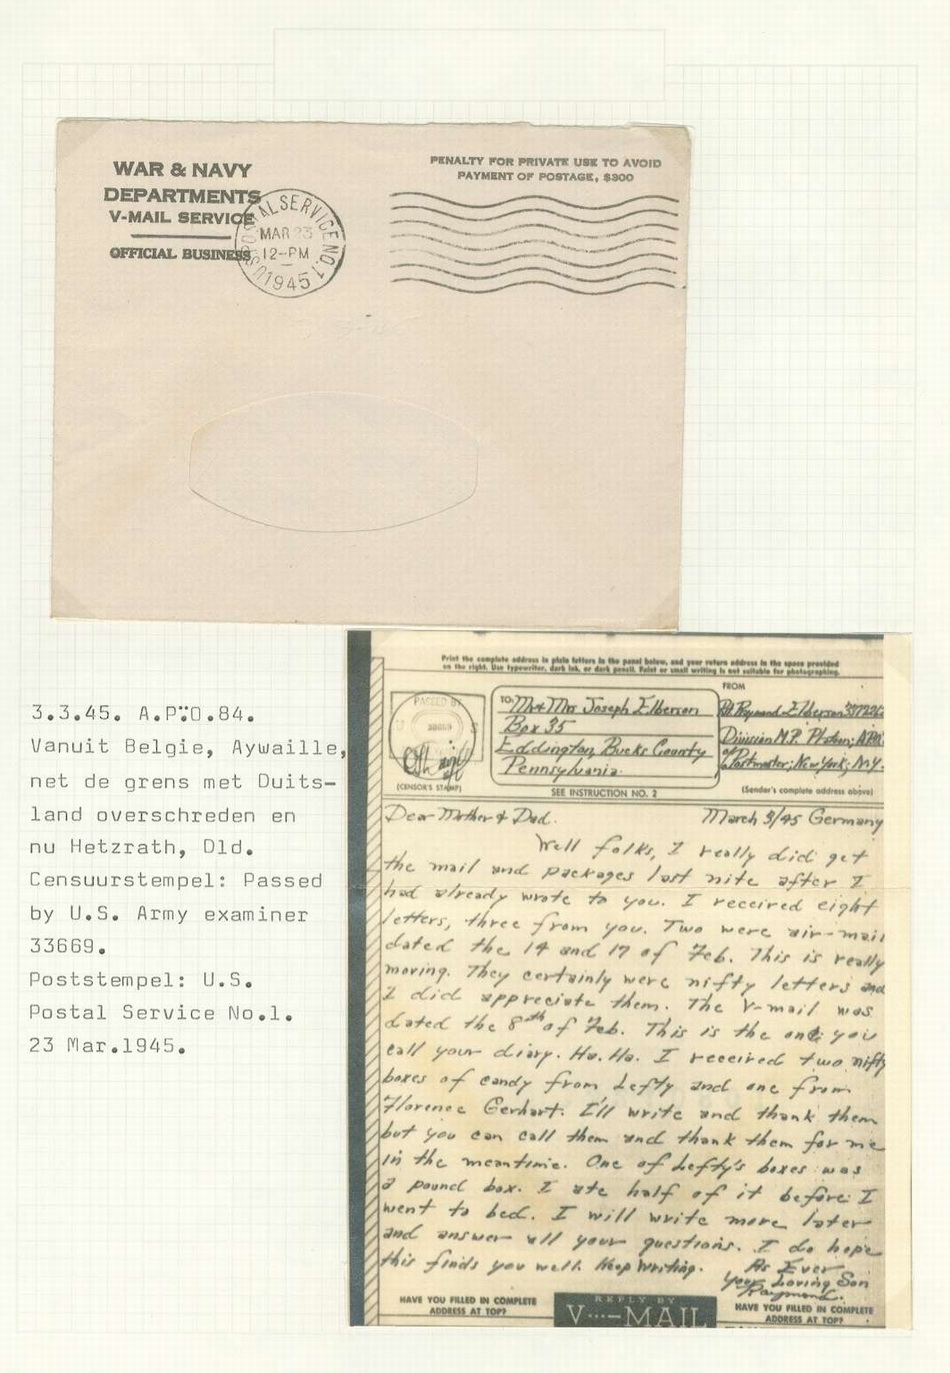 WAR & NAVY
DEPARTMENTS
V-MAIL SERVICE
OFFICIAL BUSINESS
U.S. POSTAL SERVICE NO.1
MAR 23
12-PM
1945
PENALTY FOR PRIVATE USE TO AVOID
PAYMENT OF POSTAGE, $300
3.3.45. A.P.O.84.
Vanuit Belgie, Aywaille,
net de grens met Duits-
land overschreden en
nu Hetzrath, Dld.
Censuurstempel: Passed
by U.S. Army examiner
33669.
Poststempel: U.S.
Postal Service No.1.
23 Mar.1945.
Print the complete address in plain letters in the panel below, and your return address in the space provided
on the right. Use typewriter, dark ink, or dark pencil. Faint or small writing is not suitable for photographing.
PASSED BY
(CENSOR'S STAMP)
TO: Mr & Mrs Joseph Elberson
Box 35
Eddington Bucks County
Pennsylvania
SEE INSTRUCTION NO. 2
FROM
Raymond Elberson
Division M.P. Platoon; APO
Postmaster; New York; N.Y.
(Sender's complete address above)
Dear Mother & Dad. March 3/45 Germany
Well folks, I really did get
the mail and packages last nite after I
had already wrote to you. I received eight
letters, three from you. Two were air-mail
dated the 14 and 17 of Feb. This is really
moving. They certainly were nifty letters and
I did appreciate them. The V-mail was
dated the 8th of Feb. This is the one you
call your diary. Ha. Ha. I received two nifty
boxes of candy from Lefty and one from
Florence Gerhart. I'll write and thank them
but you can call them and thank them for me
in the meantime. One of Lefty's boxes was
a pound box. I ate half of it before I
went to bed. I will write more later
and answer all your questions. I do hope
this finds you well. Keep writing.
As Ever
Your Loving Son
Raymond.
HAVE YOU FILLED IN COMPLETE
ADDRESS AT TOP?
REPLY BY
V···—MAIL
HAVE YOU FILLED IN COMPLETE
ADDRESS AT TOP?